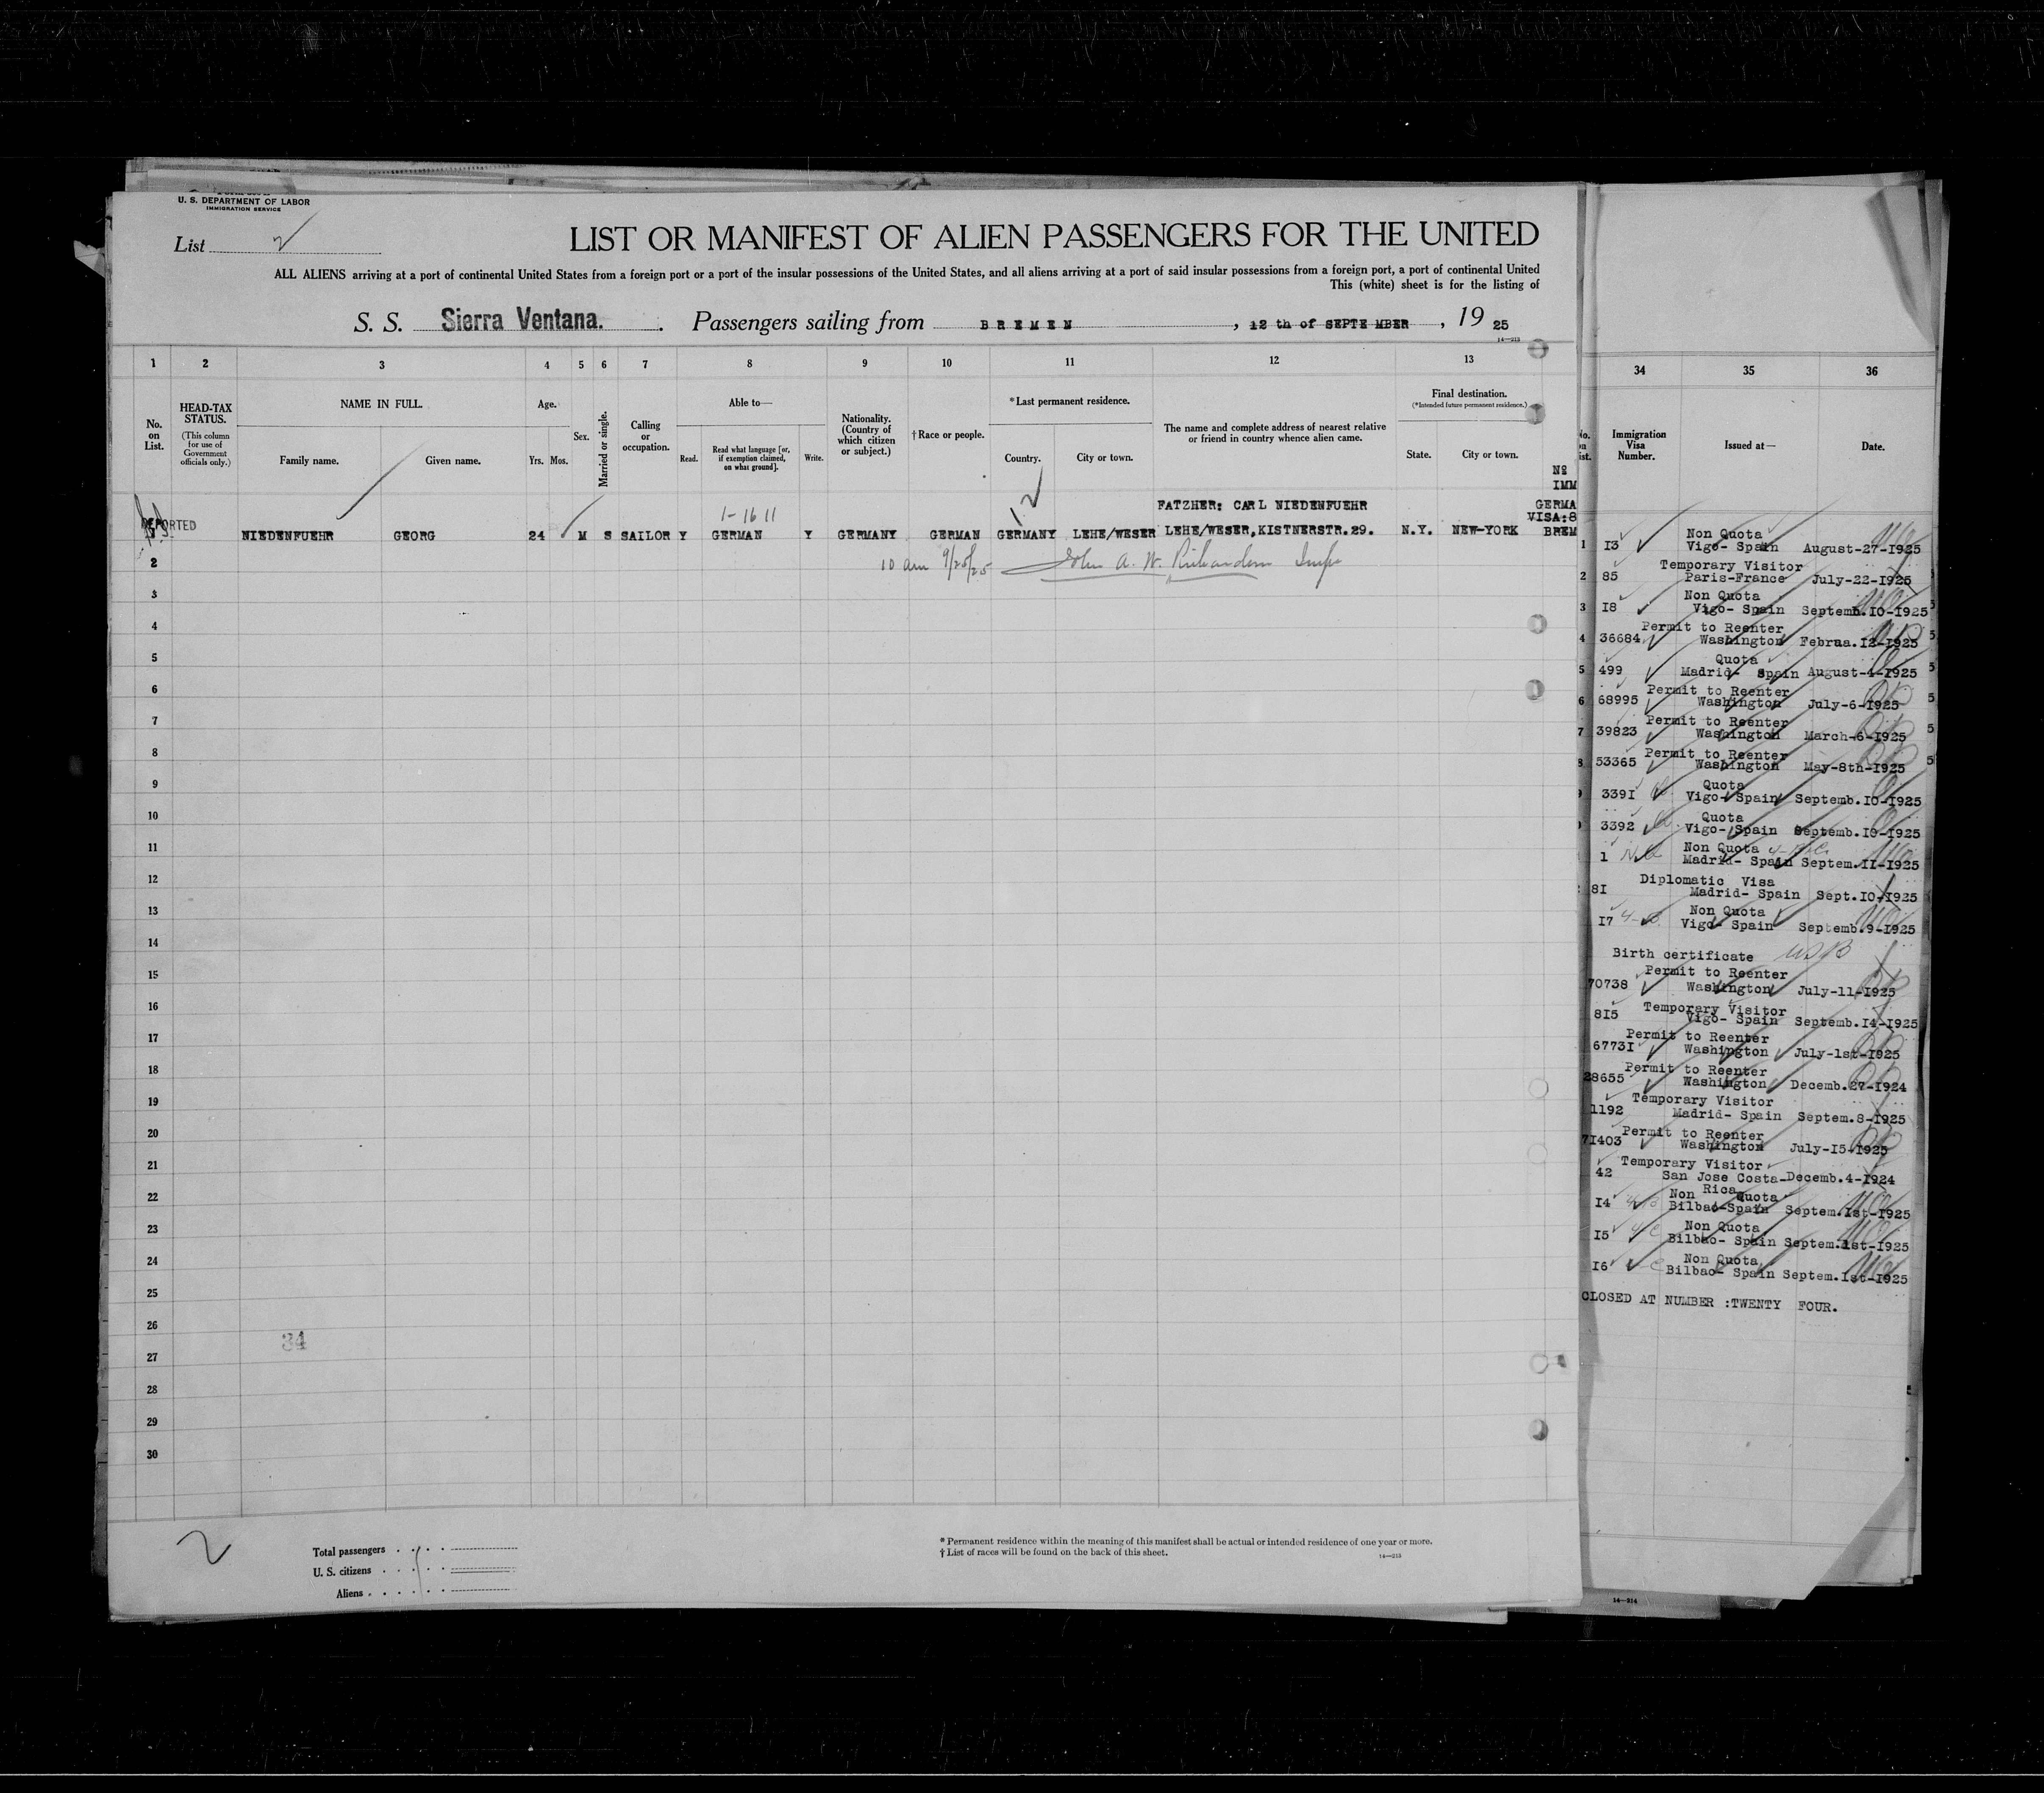 U. S. DEPARTMENT OF LABOR
IMMIGRATION SERVICE
List 2
LIST OR MANIFEST OF ALIEN PASSENGERS FOR THE UNITED
ALL ALIENS arriving at a port of continental United States from a foreign port or a port of the insular possessions of the United States, and all aliens arriving at a port of said insular possessions from a foreign port, a port of continental United
This (white) sheet is for the listing of
S. S. Sierra Ventana. Passengers sailing from BREMEN, 12 th of SEPTEMBER, 19 25
14—213
1 2 3 4 5 6 7 8 9 10 11 12 13
No. on List.
HEAD-TAX STATUS.
(This column for use of Government officials only.)
NAME IN FULL.
Family name. Given name.
Age.
Yrs. Mos.
Sex.
Married or single.
Calling or occupation.
Able to—
Read. Read what language [or, if exemption claimed, on what ground]. Write.
Nationality. (Country of which citizen or subject.)
†Race or people.
*Last permanent residence.
Country. City or town.
The name and complete address of nearest relative or friend in country whence alien came.
Final destination.
(*Intended future permanent residence.)
State. City or town.
Nº
IMM
12
1-16 11
FATZHER: CARL NIEDENFUEHR
GERMA
VISA:8
DEPORTED
NIEDENFUEHR GEORG 24 M S SAILOR Y GERMAN Y GERMANY GERMAN GERMANY LEHE/WESER LEHE/WESER,KISTNERSTR.29. N.Y. NEW-YORK BREM
10 am 9/25/25 John A. W. Richardson Insp
2
3
4
5
6
7
8
9
10
11
12
13
14
15
16
17
18
19
20
21
22
23
24
25
26
34
27
28
29
30
2
Total passengers
U. S. citizens
Aliens
* Permanent residence within the meaning of this manifest shall be actual or intended residence of one year or more.
† List of races will be found on the back of this sheet.
14—213
34 35 36
Immigration Visa Number.
Issued at—
Date.
Non Quota
1 I3 Vigo- Spain August-27-I925
Temporary Visitor
2 85 Paris-France July-22-I925
Non Quota
3 I8 Vigo- Spain Septemb.I0-I925
Permit to Reenter
4 36684 Washington Februa.I2-I925
Quota
5 499 Madrid- Spain August-4-I925
Permit to Reenter
6 68995 Washington July-6-I925
Permit to Reenter
7 39823 Washington March-6-I925
Permit to Reenter
8 53365 Washington May-8th-I925
Quota
339I Vigo-Spain Septemb.I0-I925
Quota
3392 Vigo- Spain Septemb.I0-I925
Non Quota
1 Madrid- Spain Septem.II-I925
Diplomatic Visa
8I Madrid- Spain Sept.I0-I925
Non Quota
I7 Vigo- Spain Septemb.9-I925
Birth certificate USB
Permit to Reenter
70738 Washington July-11-I925
Temporary Visitor
8I5 Vigo- Spain Septemb.I4-I925
Permit to Reenter
6773I Washington July-1st-I925
Permit to Reenter
28655 Washington Decemb.27-I924
Temporary Visitor
1192 Madrid- Spain Septem.8-I925
Permit to Reenter
7I403 Washington July-I5-I925
Temporary Visitor
42 San Jose Costa-Decemb.4-I924
Rica
Non Quota
I4 Bilbao-Spain Septem.1st-I925
Non Quota
I5 Bilbao- Spain Septem.1st-I925
Non Quota
I6 Bilbao- Spain Septem.Ist-I925
CLOSED AT NUMBER :TWENTY FOUR.
14—214